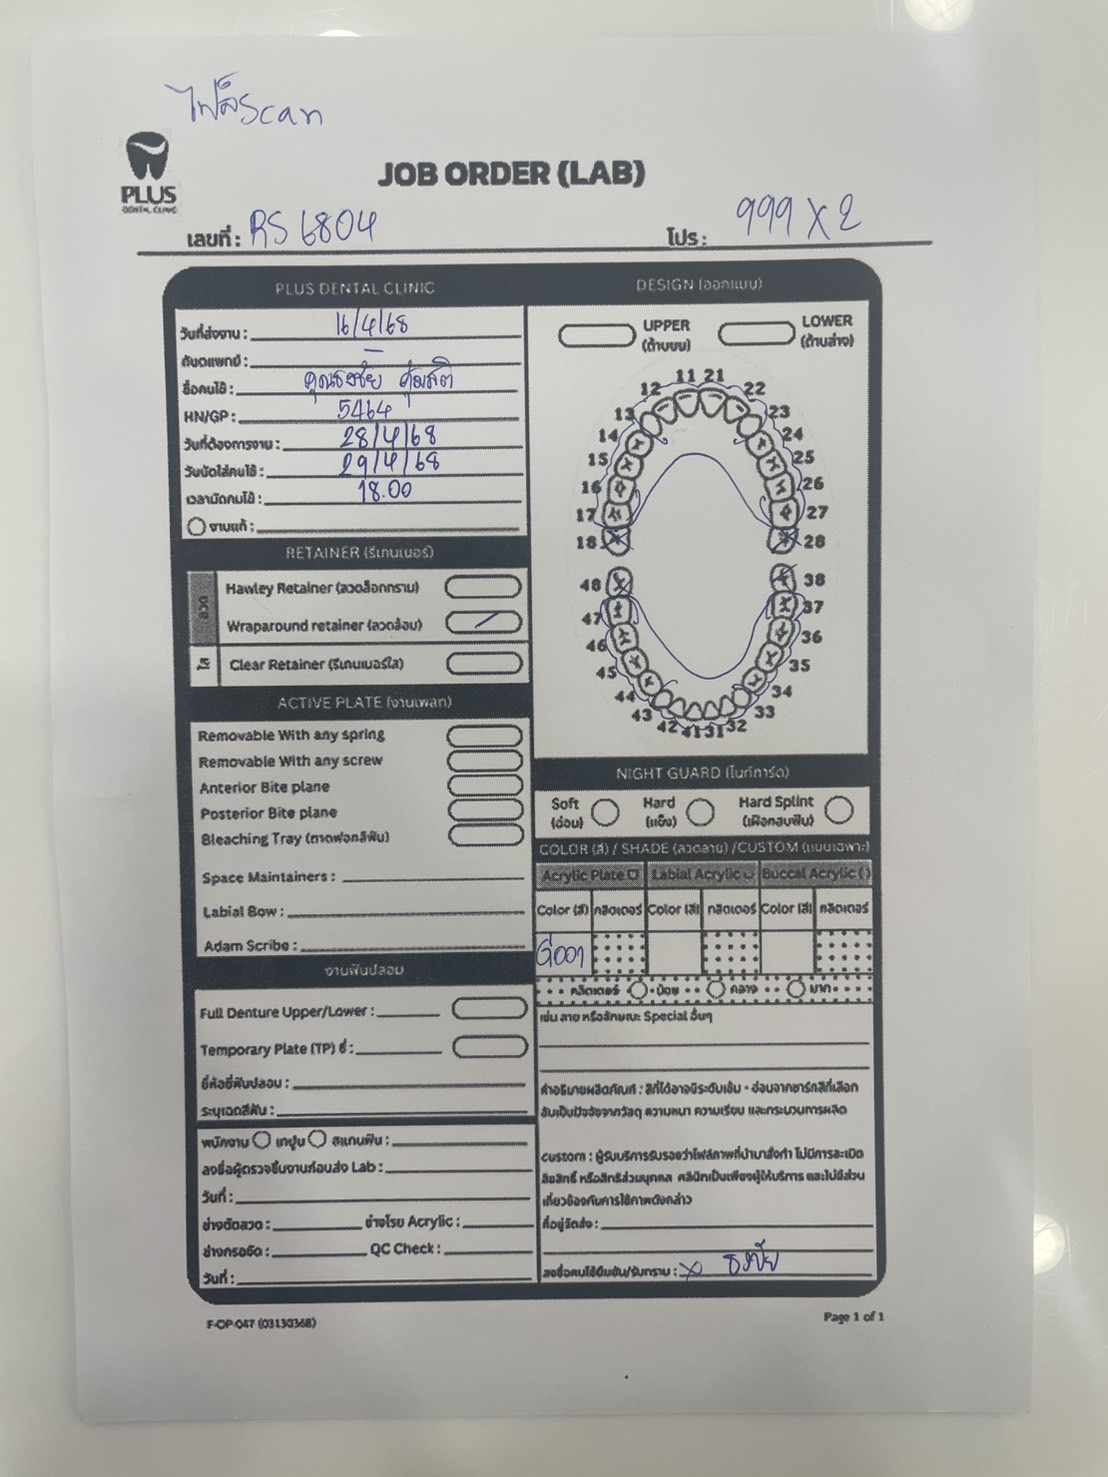 ไฟล์Scan
PLUS
DENTAL CLINIC
JOB ORDER (LAB)
เลขที่ : RS 6804
โปร : 999 X 2
PLUS DENTAL CLINIC
วันที่ส่งงาน : 16/4/68
ทันตแพทย์ : -
ชื่อคนไข้ : คุณธงชัย
HN/GP : 5464
วันที่ต้องการงาน : 28/4/68
วันนัดใส่คนไข้ : 29/4/68
เวลานัดคนไข้ : 18.00
งานแก้ :
RETAINER (รีเทนเนอร์)
ลวด
Hawley Retainer (ลวดล็อกกราม)
Wraparound retainer (ลวดล้อม)
ใส
Clear Retainer (รีเทนเนอร์ใส)
ACTIVE PLATE (งานเพลท)
Removable With any spring
Removable With any screw
Anterior Bite plane
Posterior Bite plane
Bleaching Tray (ถาดฟอกสีฟัน)
Space Maintainers :
Labial Bow :
Adam Scribe :
งานฟันปลอม
Full Denture Upper/Lower :
Temporary Plate (TP) ซี่ :
ยี่ห้อซี่ฟันปลอม :
ระบุเฉดสีฟัน :
พนักงาน เทปูน สแกนฟัน :
ลงชื่อผู้ตรวจชิ้นงานก่อนส่ง Lab :
วันที่ :
ช่างดัดลวด : ช่างโรย Acrylic :
ช่างกรอขัด : QC Check :
วันที่ :
DESIGN (ออกแบบ)
UPPER
(ด้านบน)
LOWER
(ด้านล่าง)
11 21
12 22
13 23
14 24
15 25
16 26
17 27
18 28
48 38
47 37
46 36
45 35
44 34
43 33
42 41 31 32
NIGHT GUARD (ไนท์การ์ด)
Soft
(อ่อน)
Hard
(แข็ง)
Hard Splint
(เฝือกสบฟัน)
COLOR (สี) / SHADE (ลวดลาย) /CUSTOM (แบบเฉพาะ)
Acrylic Plate Labial Acrylic Buccal Acrylic ()
Color (สี) กลิตเตอร์ Color (สี) กลิตเตอร์ Color (สี) กลิตเตอร์
G001
กลิตเตอร์ น้อย กลาง มาก
เช่น ลาย หรือลักษณะ Special อื่นๆ
คำอธิบายผลิตภัณฑ์ : สีที่ได้อาจมีระดับเข้ม - อ่อนจากชาร์ทสีที่เลือก
อันเป็นปัจจัยจากวัสดุ ความหนา ความเรียบ และกระบวนการผลิต
custom : ผู้รับบริการรับรองว่าไฟล์ภาพที่นำมาสั่งทำ ไม่มีการละเมิด
ลิขสิทธิ์ หรือสิทธิส่วนบุคคล คลินิกเป็นเพียงผู้ให้บริการ และไม่มีส่วน
เกี่ยวข้องกับการใช้ภาพดังกล่าว
ที่อยู่จัดส่ง :
ลงชื่อคนไข้ยืนยัน/รับทราบ : x ธงชัย
F-OP-047 (03130368)
Page 1 of 1